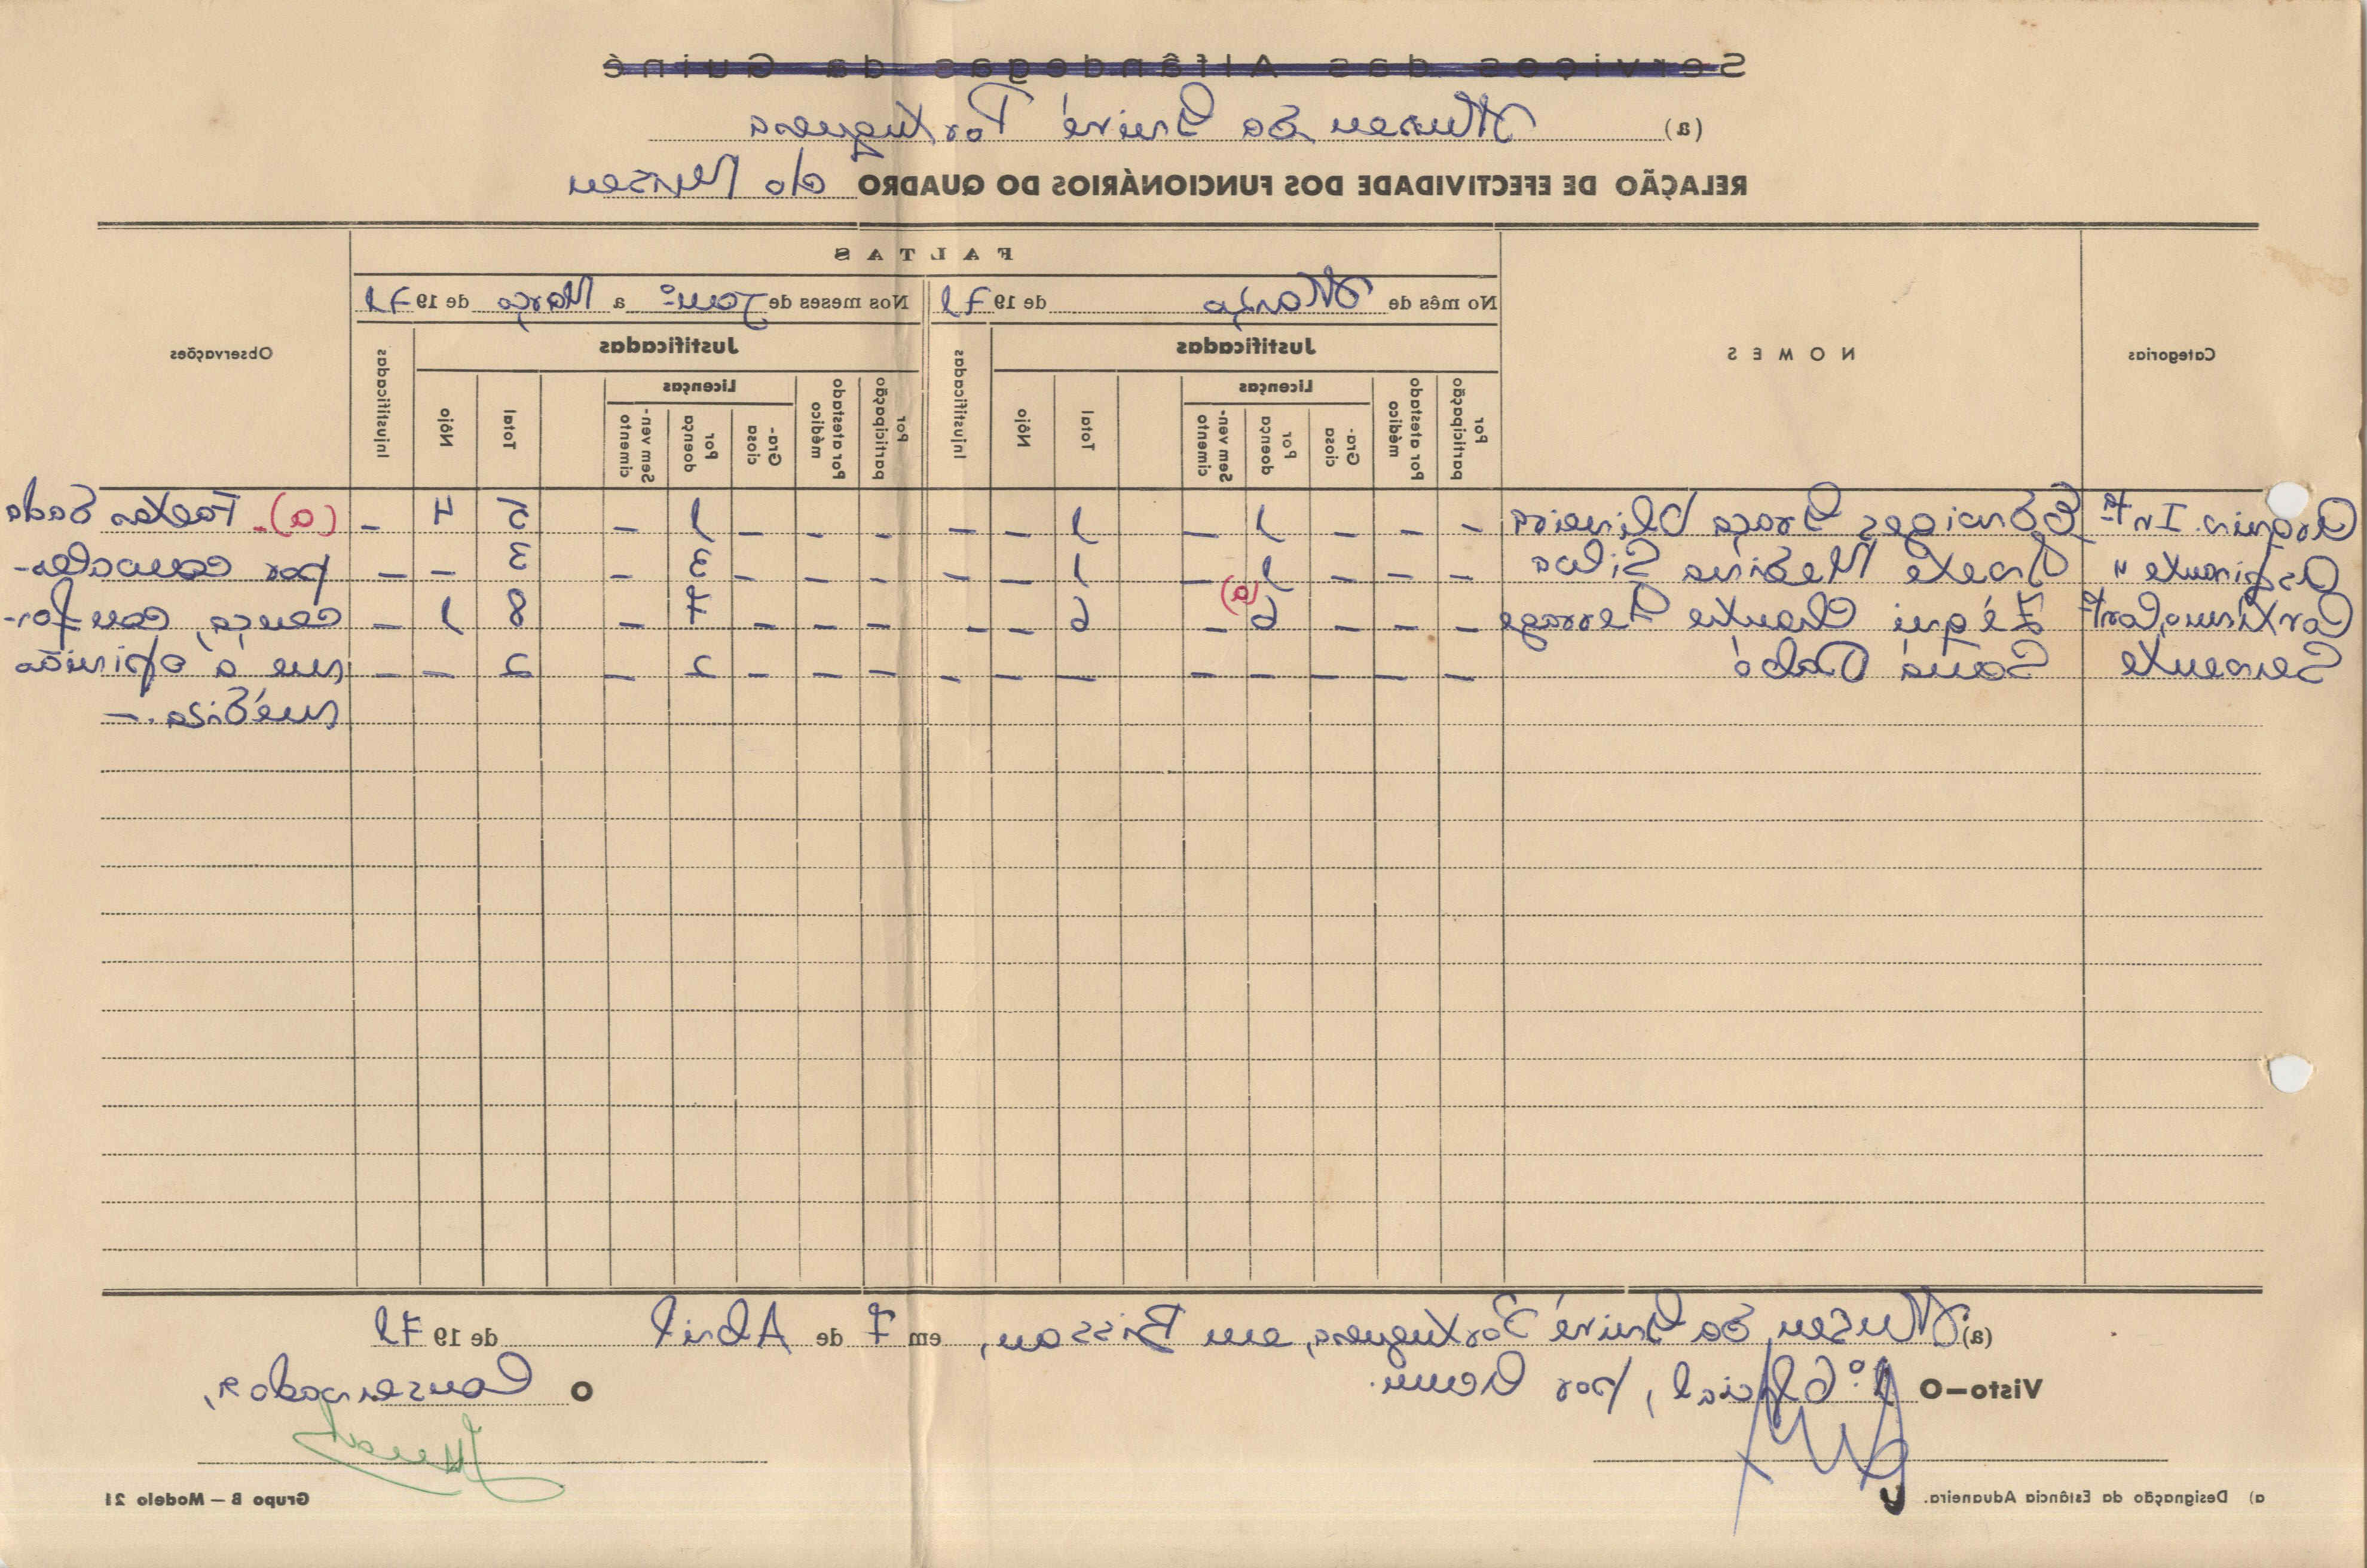 Serviços das Alfândegas da Guiné
(a) Museu da Guiné Portuguesa
RELAÇÃO DE EFECTIVIDADE DOS FUNCIONÁRIOS DO QUADRO do Museu
Categorias
N O M E S
F A L T A S
No mês de Março de 1971
Nos meses de Jan.º a Março de 1971
Observações
Justificadas
Injustificadas
Justificadas
Injustificadas
Por participação
Por atestado médico
Licenças
Gra- ciosa
Por doença
Sem ven- cimento
Total
Nôjo
Por participação
Por atestado médico
Licenças
Gra- ciosa
Por doença
Sem ven- cimento
Total
Nôjo
Eduiges Graça Oliveira – – – 1 – 1 – – – – – 1 – 5 4 – (a)- Faltas dada
Aspirante " Arlete Medina Silva – – – 1 – 1 – – – – – 3 – 3 – – por
Duarte – – – 6 (a) – 6 – – – – – 7 – 8 1 –
Servente – – – – – – – – – – – 2 – 2 – – me a opinião
médica.–
(a) Museu da Guiné Portuguesa, em Bissau, em 7 de Abril de 1971
Visto—O 1.º Oficial, por acum.
O Conservador,
a) Designação da Estância Aduaneira.
Grupo B — Modelo 21